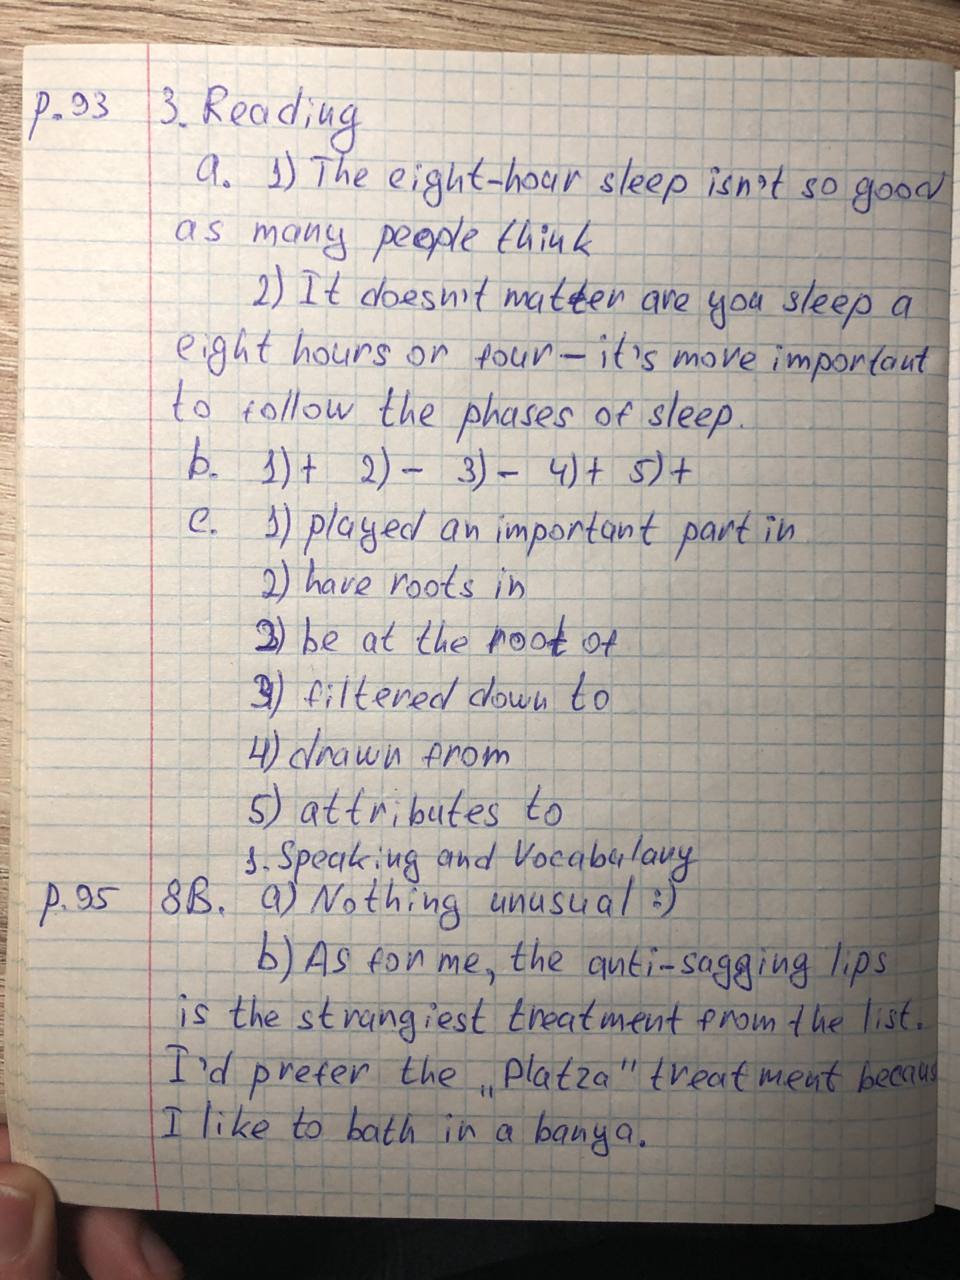 p.93 3. Reading
a. 1) The eight-hour sleep isn't so good
as many people think
2) It doesn't matter are you sleep a
eight hours or four – it's more important
to follow the phases of sleep.
b. 1)+ 2)– 3)– 4)+ 5)+
c. 1) played an important part in
2) have roots in
2) be at the root of
3) filtered down to
4) drawn from
5) attributes to
1. Speaking and Vocabulary
p.95 8B. a) Nothing unusual :)
b) As for me, the anti-sagging lips
is the strangiest treatment from the list.
I'd prefer the „Platza" treatment becaus
I like to bath in a banya.